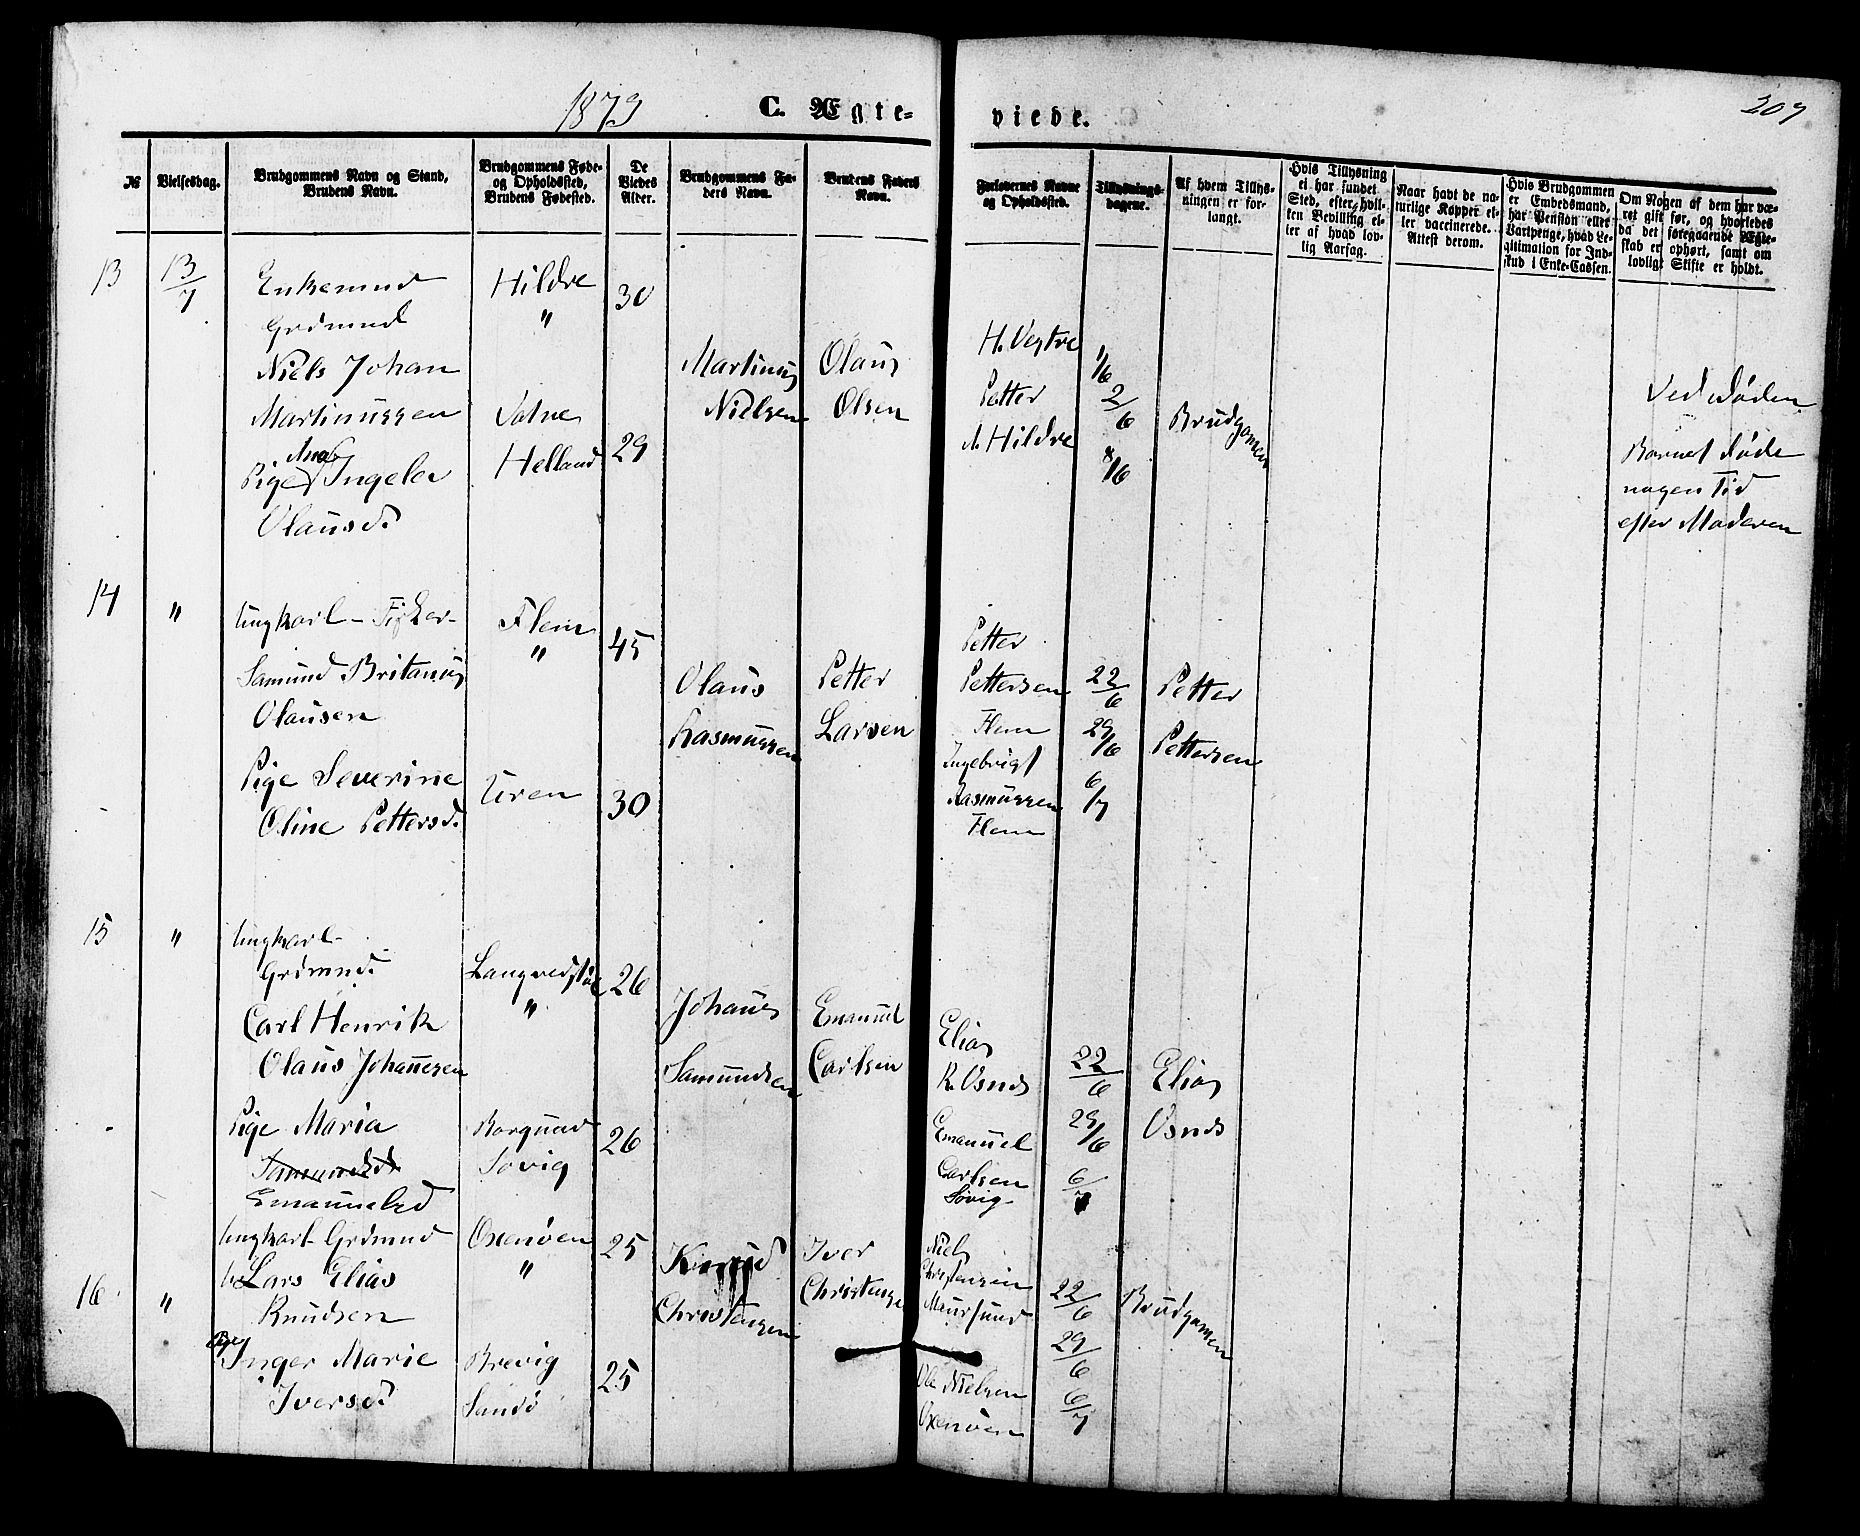 1873
C. Ægte-
viede.
209
№
Vielsesdag.
Brudgommens Navn og Stand,
Brudens Navn.
Brudgommens Føde-
og Opholdssted,
Brudens Fødested.
De
Viedes
Alder.
Brudgommens Fa-
ders Navn.
Brudens Faders
Navn.
Forlovernes Navne
og Opholdssted.
Tillysnings-
dagene.
Af hvem Tillys-
ningen er for-
langt.
Hvis Tillysning
ei har fundet
Sted, efter hvil-
ken Bevilling el-
ler af hvad lov-
lig Aarsag.
Naar havt de na-
turlige Kopper el-
ler vaccinerede.
Attest derom.
Hvis Brudgommen
er Embedsmand,
har Pension eller
Vartpenge, hvad Le-
gitimation for Ind-
skud i Enke-Cassen.
Om Nogen af dem har væ-
ret gift før, og hvorledes
da det foregaaende Ægte-
skab er ophørt, samt om
lovligt Skifte er holdt.
13
13/7
Enkemand
Grdmand
Niels Johan
Martinussen
Ana
Pige Ingeler
Olausd.
Hildre
"
Vatne
Helland
30
29
Martinus
Nielsen
Olaus
Olsen
H. Vestre
Petter
A. Hildre
1/6
2/6
8/6
Brudgomen
Ved Døden
Barnet døde
nogen Tid
efter Moderen
14
"
Ungkarl - Fisker-
Samund Britanus
Olausen
Pige Severine
Oline Pettersd.
Flem
"
Uren
45
30
Olaus
Rasmussen
Petter
Larsen
Petter
Pettersen
Flem
Ingebrigt
Rasmussen
Flem
22/6
29/6
6/7
Petter
Pettersen
15
"
Ungkarl-
Grdmnd.
Carl Henrik
Olaus Johannesen
Pige Maria
Emanuelsd
"
Borgund
Søvig
26
26
Johannes
Samundsen
Emanuel
Carlsen
Elias
R. Osnes
Emanuel
Carlsen
Søvig
22/6
29/6
6/7
Elias
Osnes
16
"
Ungkarl Grdmnd
Lars Elias
Knudsen
Pige
Inger Marie
Iversd.
Oxenøen
"
Brevig
Sandø
25
25
Knud
Christensen
Iver
Christense
Niels
Christensen
Maursund
Ole Nielsen
Oxenøen
22/6
29/6
6/7
Brudgomen